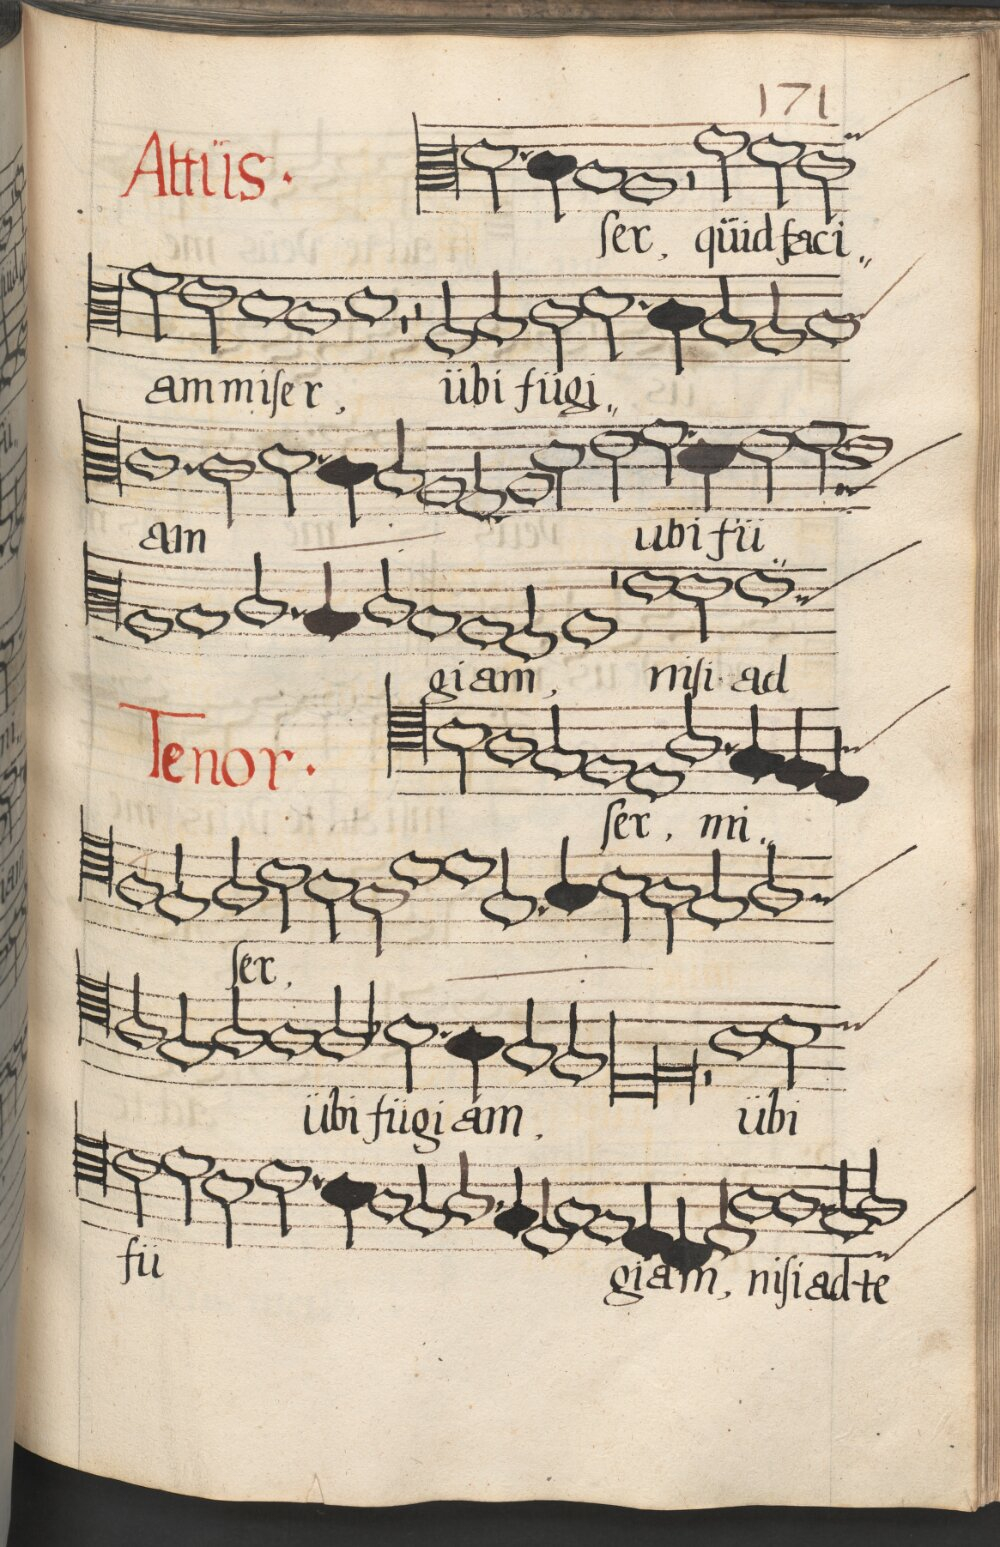 171
Altüs.
ser, qüid faci„
am miser, übi fügi„
am ubi fü„
giam, nisi ad
Tenor.
ser, mi„
ser,
übi fügiam, übi
fü giam, nisi ad te